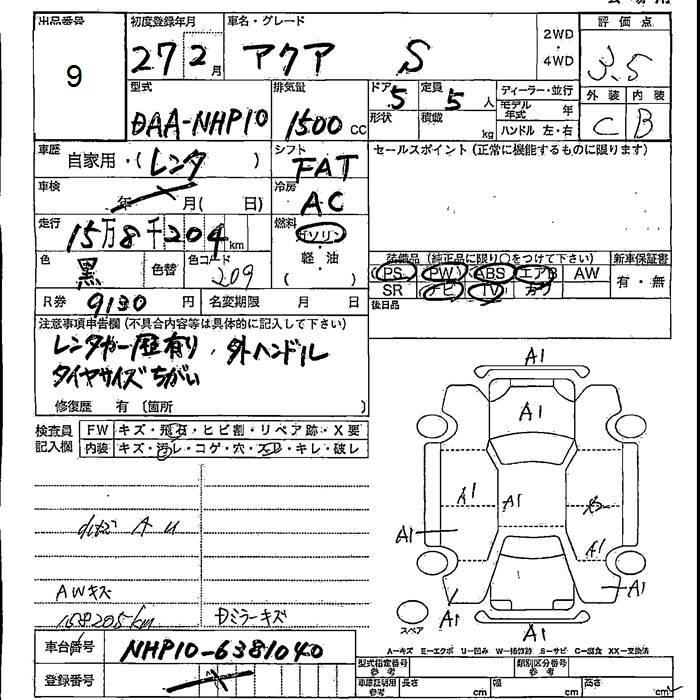 出品番号 9
初度登録年月 27 2月
車名・グレード アクア S
2WD・4WD
評価点 3.5
外装 C 内装 B
型式 DAA-NHP10
排気量 1500 cc
ドア 5 定員 5 人
形状 積載 kg
ディーラー・並行
モデル年式 年
ハンドル 左・右
車歴 自家用・(レンタ )
シフト FAT
セールスポイント(正常に機能するものに限ります)
車検 年 月( 日)
冷房 AC
走行 15万8千204km
燃料 ガソリン・軽・油
( )
色 黒 色替 色コード 209
装備品(純正品に限り○をつけて下さい) 新車保証書
PS PW ABS エアB AW 有・無
SR ナビ TV カワ
R券 9130 円 名変期限 月 日
後日品
注意事項申告欄(不具合内容等は具体的に記入して下さい)
レンタカー歴有り、外ハンドル
タイヤサイズちがい
修復歴 有〔箇所 〕
検査員記入欄 FW キズ・飛石・ヒビ割・リペア跡・X要
内装 キズ・汚レ・コゲ・穴・スレ・キレ・破レ
A1
A1
A1 A1
A1 A1
A1 A1
A1
A U
AWキズ
158205km
Dミラーキズ
スペア
A-キズ E-エクボ U-凹み W-補修跡 S-サビ C-腐食 XX-交換済
車台番号 NHP10-6381040
登録番号
型式指定番号 参考 類別区分番号 参考
車庫証明用 参考 長さ cm 幅 cm 高さ cm